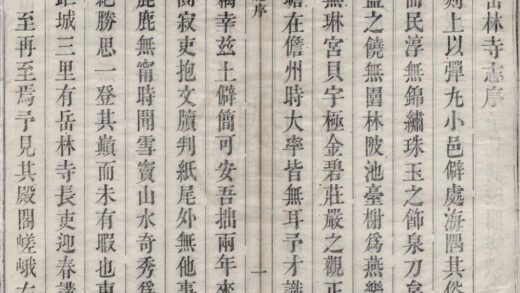 岳林寺志序
剡上以彈丸小邑僻處海隅其俗
而民淳無錦繡珠玉之飾泉刀
益之饒無園林陂池臺榭爲燕樂
無琳宮貝宇極金碧莊嚴之觀正
瞻在儋州時大率皆無耳予才識
序
一
稱幸茲土僻簡可安吾拙兩年來
寂吏抱文牘判紙尾外無他事
鹿鹿無甯時聞雪竇山水奇秀爲
絕勝思一登其巔而未有暇也東
距城三里有岳林寺長吏迎春講
至再至焉予見其殿閣嵯峨